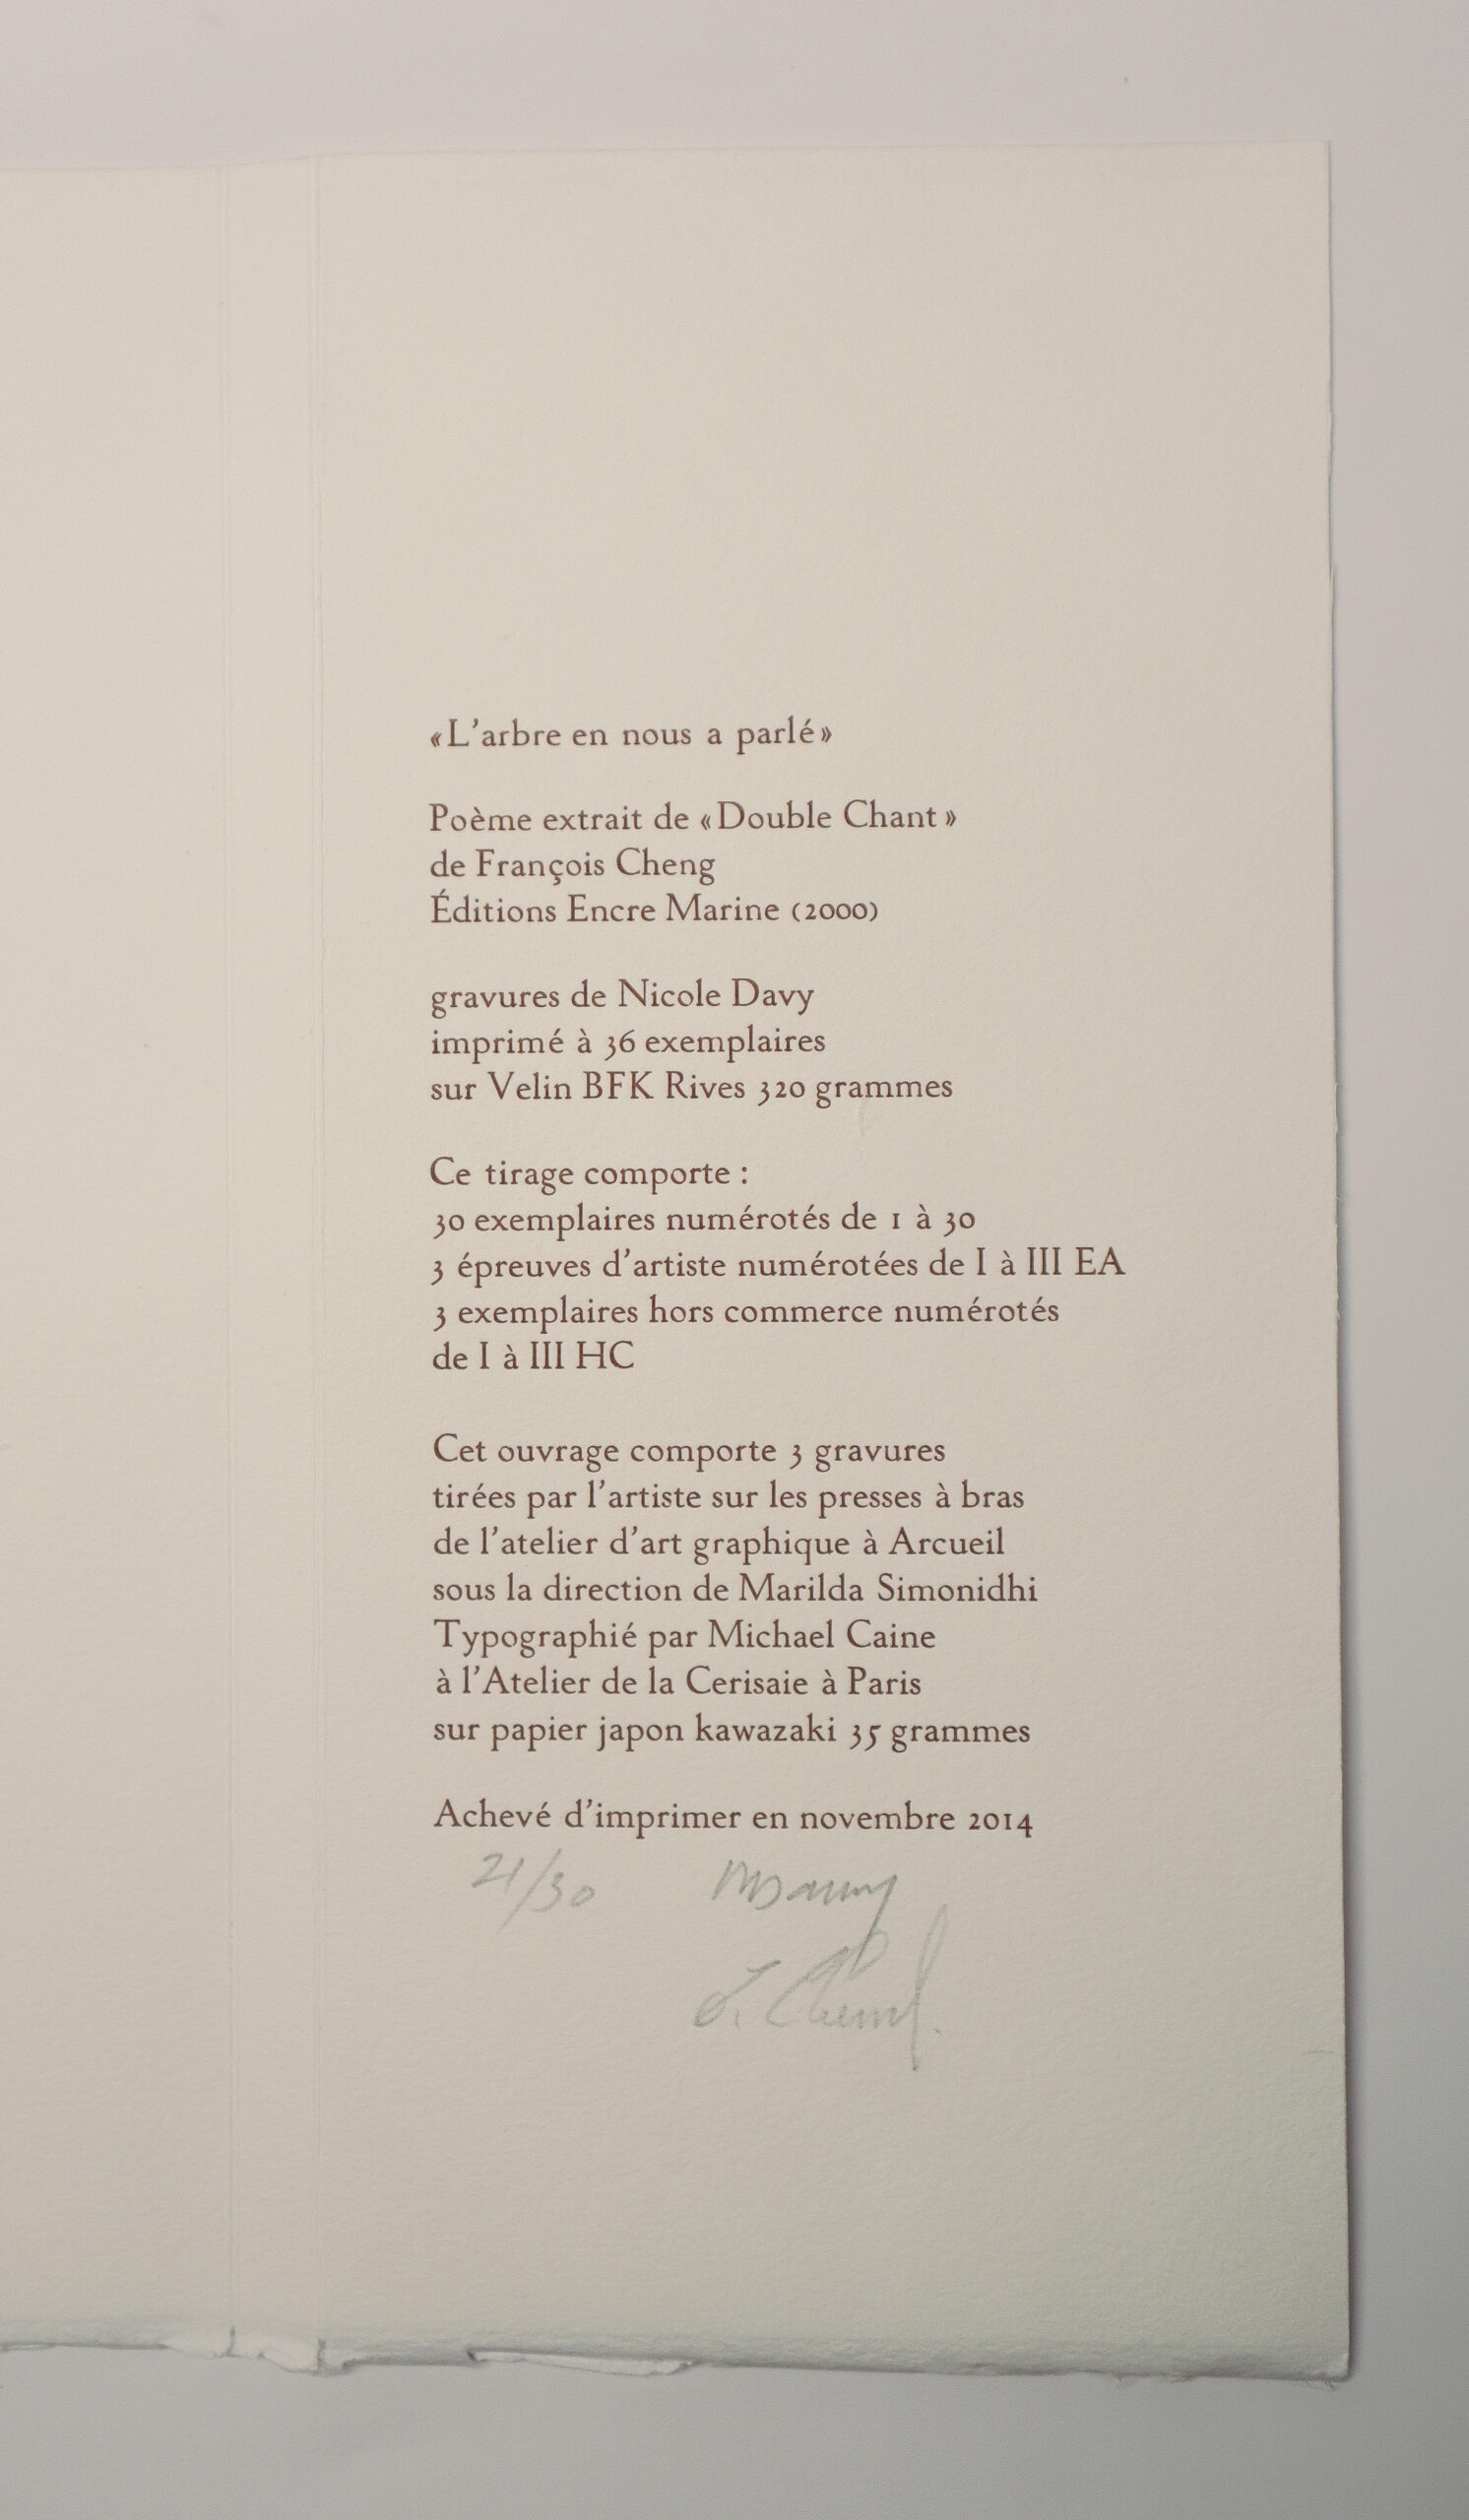 «L'arbre en nous a parlé»
Poème extrait de «Double Chant»
de François Cheng
Éditions Encre Marine (2000)
gravures de Nicole Davy
imprimé à 36 exemplaires
sur Velin BFK Rives 320 grammes
Ce tirage comporte :
30 exemplaires numérotés de 1 à 30
3 épreuves d'artiste numérotées de I à III EA
3 exemplaires hors commerce numérotés
de I à III HC
Cet ouvrage comporte 3 gravures
tirées par l'artiste sur les presses à bras
de l'atelier d'art graphique à Arcueil
sous la direction de Marilda Simonidhi
Typographié par Michael Caine
à l'Atelier de la Cerisaie à Paris
sur papier japon kawazaki 35 grammes
Achevé d'imprimer en novembre 2014
21/30